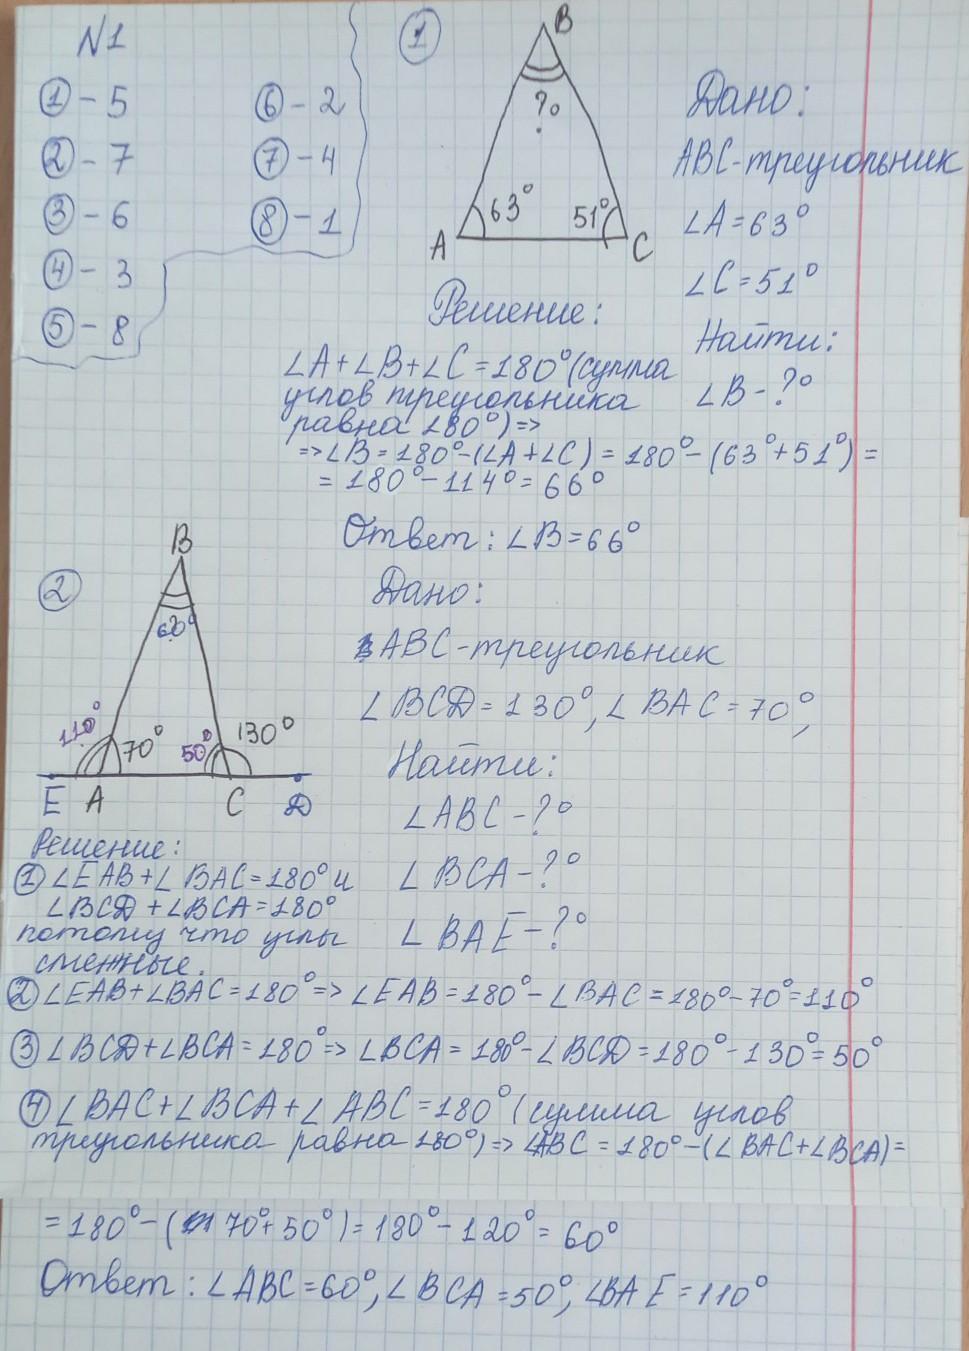 N1
① - 5
② - 7
③ - 6
④ - 3
⑤ - 8
⑥ - 2
⑦ - 4
⑧ - 1
①
B
?°
63°
51°
A
C
Дано:
ABC-треугольник
∠A=63°
∠C=51°
Найти:
∠B-?°
Решение:
∠A+∠B+∠C=180°(сумма
углов треугольника
равна 180°)=>
=>∠B=180°-(∠A+∠C)=180°-(63°+51°)=
=180°-114°=66°
Ответ: ∠B=66°
②
B
60°
110°
70°
50°
130°
E
A
C
D
Дано:
ABC-треугольник
∠BCD=130°, ∠BAC=70°,
Найти:
∠ABC-?°
∠BCA-?°
∠BAE-?°
Решение:
① ∠EAB+∠BAC=180° и
∠BCD+∠BCA=180°
потому что углы
смежные.
② ∠EAB+∠BAC=180°=>∠EAB=180°-∠BAC=180°-70°=110°
③ ∠BCD+∠BCA=180°=>∠BCA=180°-∠BCD=180°-130°=50°
④ ∠BAC+∠BCA+∠ABC=180°(сумма углов
треугольника равна 180°)=>∠ABC=180°-(∠BAC+∠BCA)=
=180°-(70°+50°)=180°-120°=60°
Ответ: ∠ABC=60°, ∠BCA=50°, ∠BAE=110°